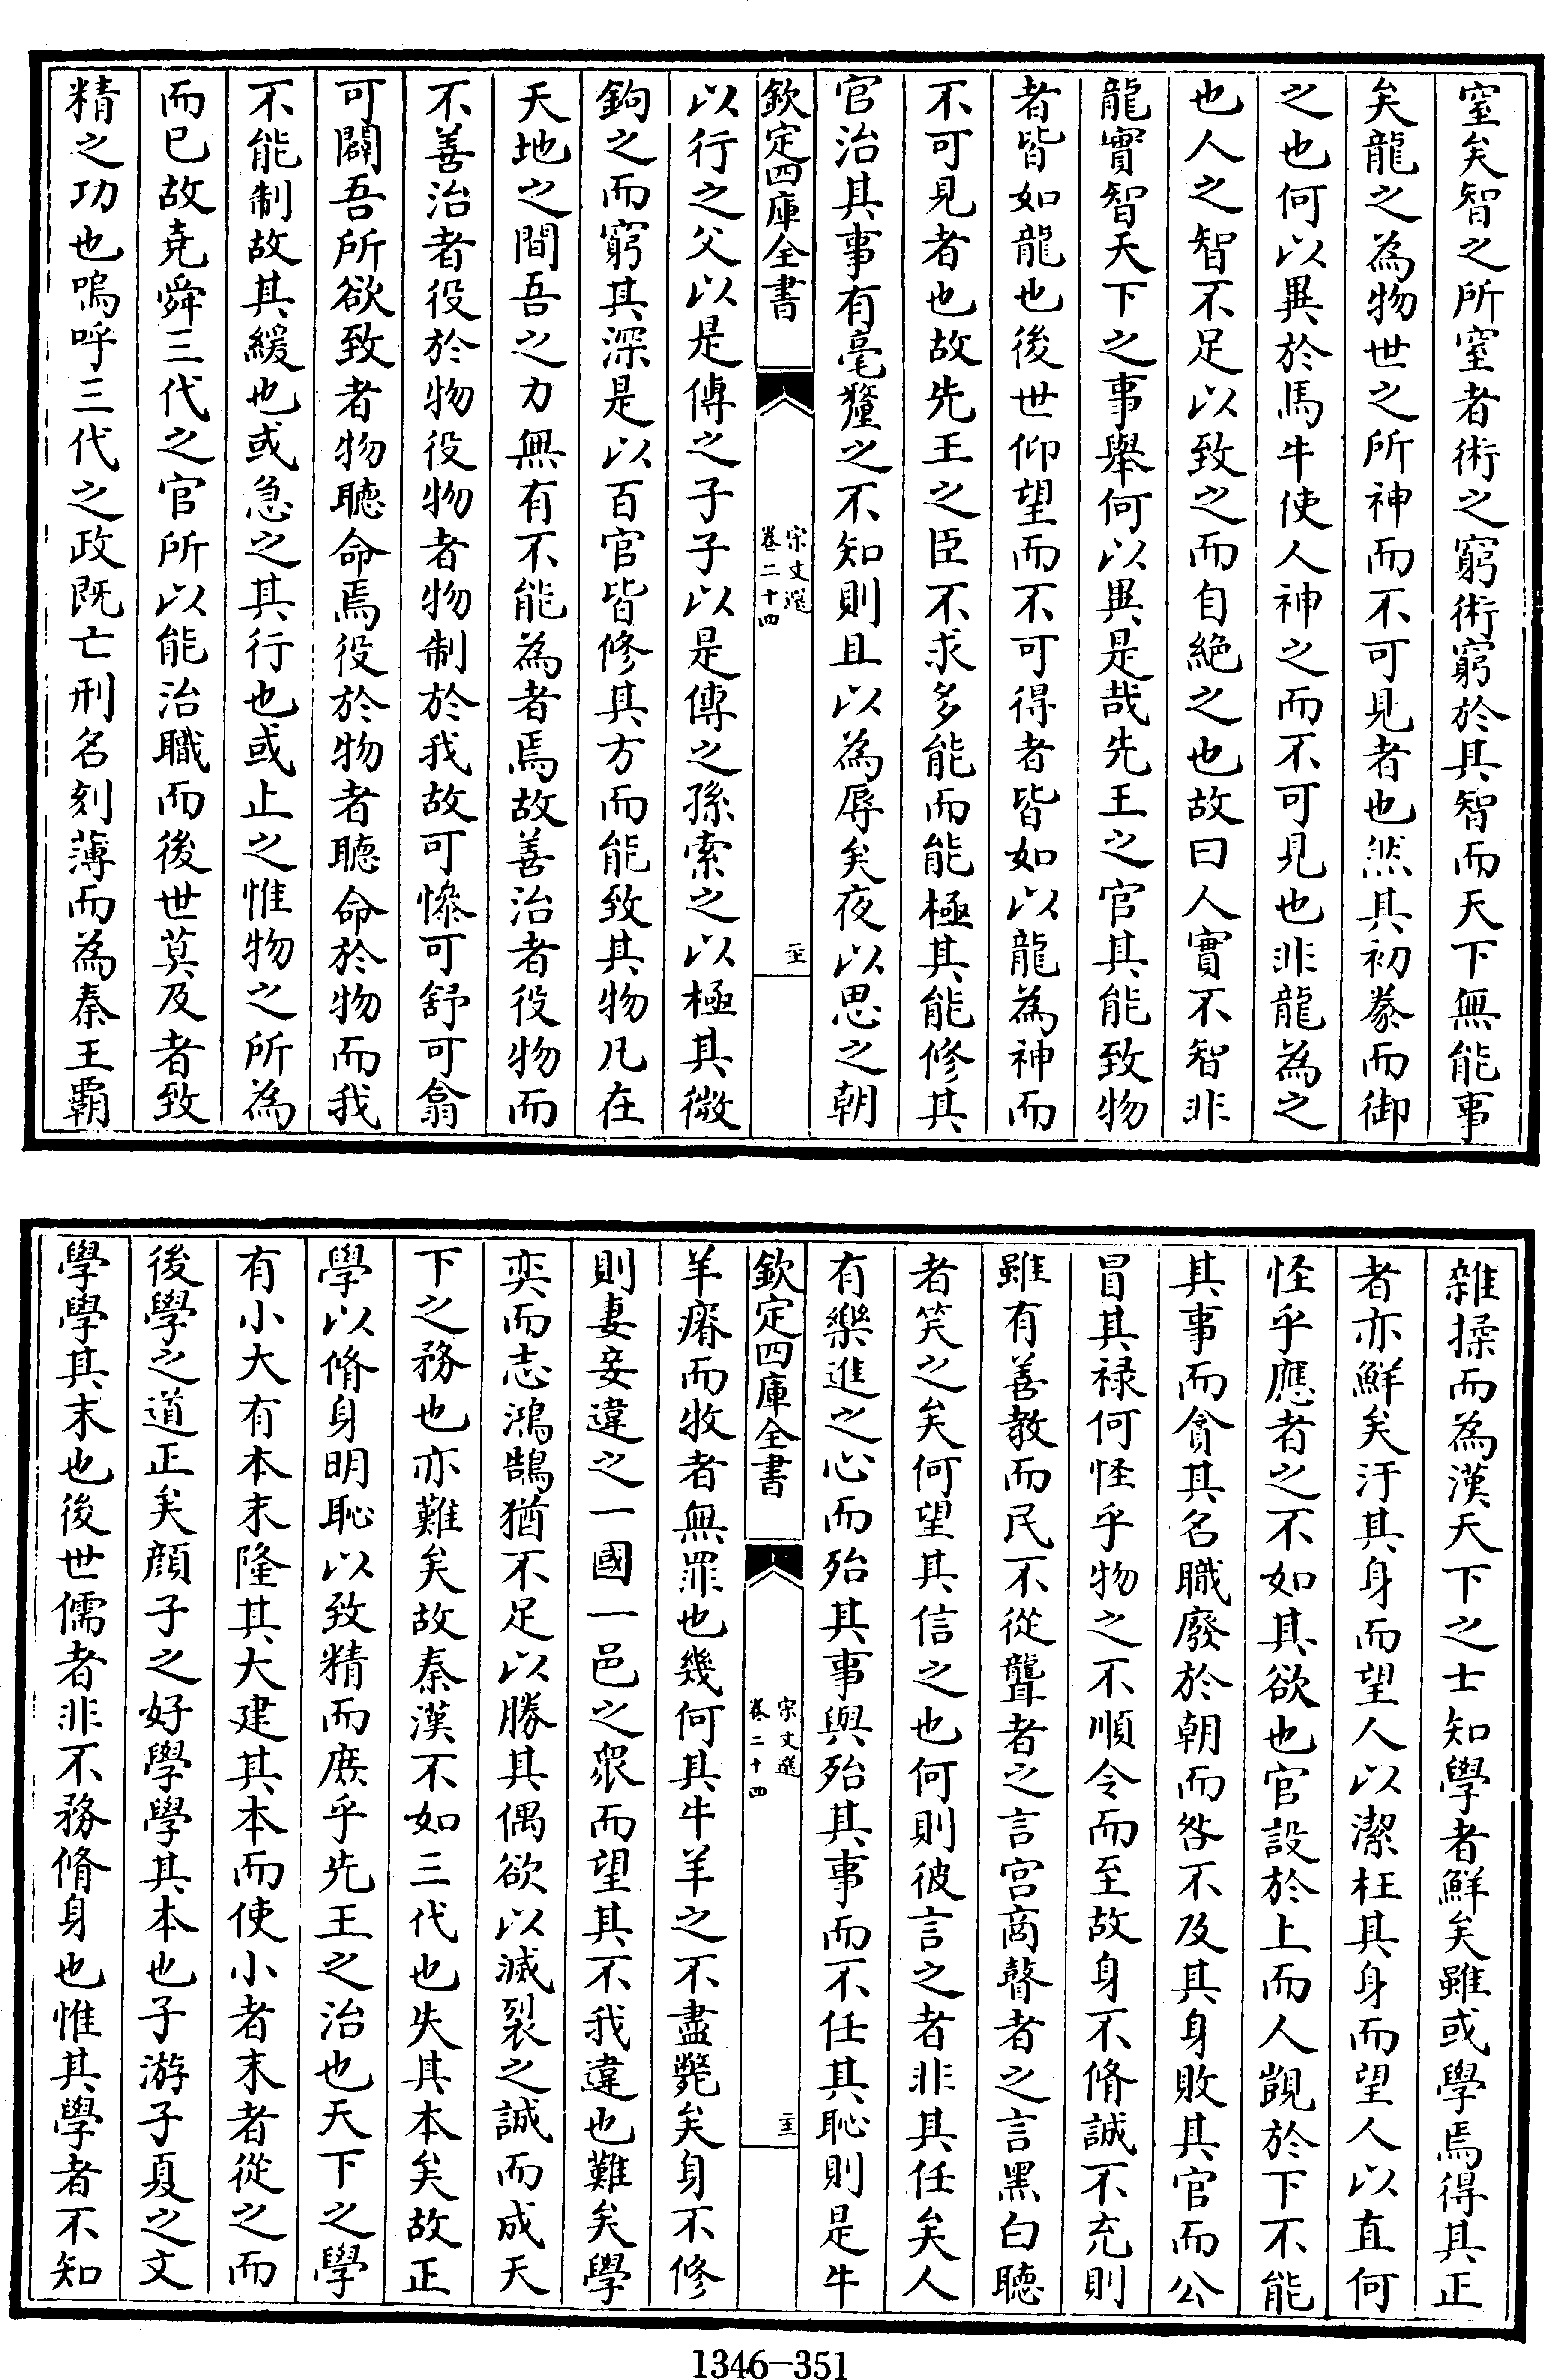 窒矣智之所窒者術之窮術窮於其智而天下無能事
矣龍之為物世之所神而不可見者也然其初豢而御
之也何以異於馬牛使人神之而不可見也非龍為之
也人之智不足以致之而自絶之也故曰人實不智非
龍實智天下之事舉何以異是哉先王之官其能致物
者皆如龍也後世仰望而不可得者皆如以龍為神而
不可見者也故先王之臣不求多能而能極其能修其
官治其事有毫釐之不知則且以為辱矣夜以思之朝
欽定四庫全書
宋文選
卷二十四
以行之父以是傳之子子以是傳之孫索之以極其微
鉤之而窮其深是以百官皆修其方而能致其物凡在
天地之間吾之力無有不能為者焉故善治者役物而
不善治者役於物役物者物制於我故可慘可舒可翕
可闢吾所欲致者物聽命焉役於物者聽命於物而我
不能制故其緩也或急之其行也或止之惟物之所為
而已故堯舜三代之官所以能治職而後世莫及者致
精之功也嗚呼三代之政既亡刑名刻薄而為秦王霸
雜揉而為漢天下之士知學者鮮矣雖或學焉得其正
者亦鮮矣汙其身而望人以潔枉其身而望人以直何
怪乎應者之不如其欲也官設於上而人覬於下不能
其事而貪其名職廢於朝而咎不及其身敗其官而公
冒其祿何怪乎物之不順令而至故身不脩誠不充則
雖有善教而民不從聾者之言宫商瞽者之言黑白聽
者笑之矣何望其信之也何則彼言之者非其任矣人
有樂進之心而殆其事與殆其事而不任其恥則是牛
欽定四庫全書
宋文選
卷二十四
羊瘠而牧者無罪也幾何其牛羊之不盡斃矣身不修
則妻妾違之一國一邑之衆而望其不我違也難矣學
奕而志鴻鵠猶不足以勝其偶欲以滅裂之誠而成天
下之務也亦難矣故秦漢不如三代也失其本矣故正
學以脩身明恥以致精而庶乎先王之治也天下之學
有小大有本末隆其大建其本而使小者末者從之而
後學之道正矣顔子之好學學其本也子游子夏之文
學學其末也後世儒者非不務脩身也惟其學者不知
1346-351